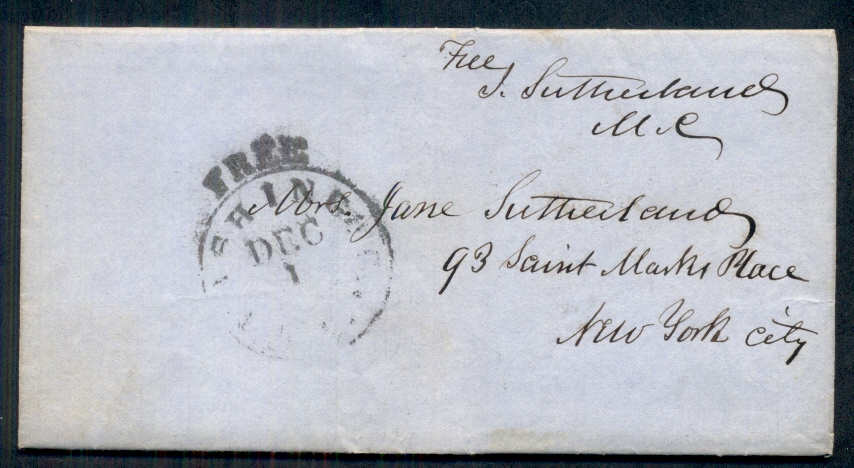 Free
J. Sutherland
M C
FREE
WASHINGTON
DEC
1
Mrs. Jane Sutherland
93 Saint Marks Place
New York city